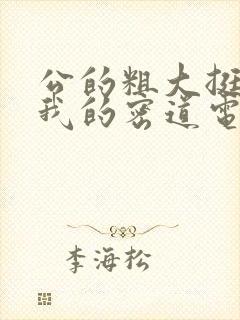 公的粗大挺
我的密道電
李海松